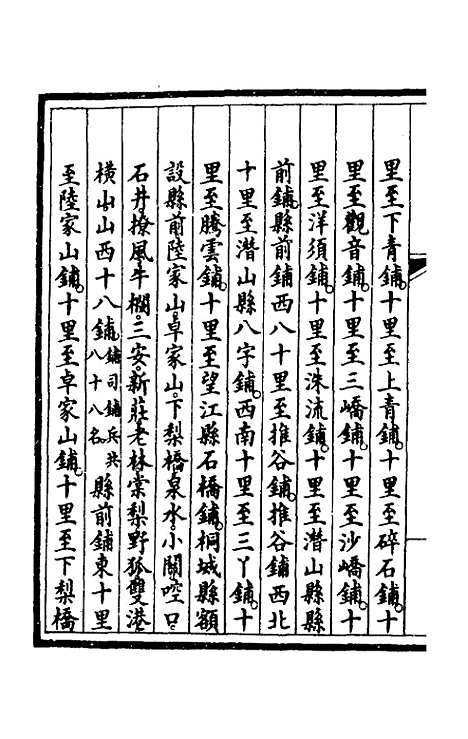 里至下青鋪。十里至上青鋪。十里至碎石鋪。十
里至觀音鋪。十里至三嶠鋪。十里至沙嶠鋪。十
里至洋須鋪。十里至洙流鋪。十里至潛山縣縣
前鋪。縣前鋪西八十里至推谷鋪。推谷鋪西北
十里至潛山縣八字鋪。西南十里至三丫鋪。十
里至騰雲鋪。十里至望江縣石橋鋪。桐城縣額
設縣前陸家山。卓家山。下梨橋。泉水。小關。崆口。
石井。撩風。牛欄。三安。新莊。老林。棠梨。野狐。雙港。
橫山。山西十八鋪。鋪司鋪兵共八十八名。縣前鋪東十里
至陸家山鋪。十里至卓家山鋪。十里至下梨橋